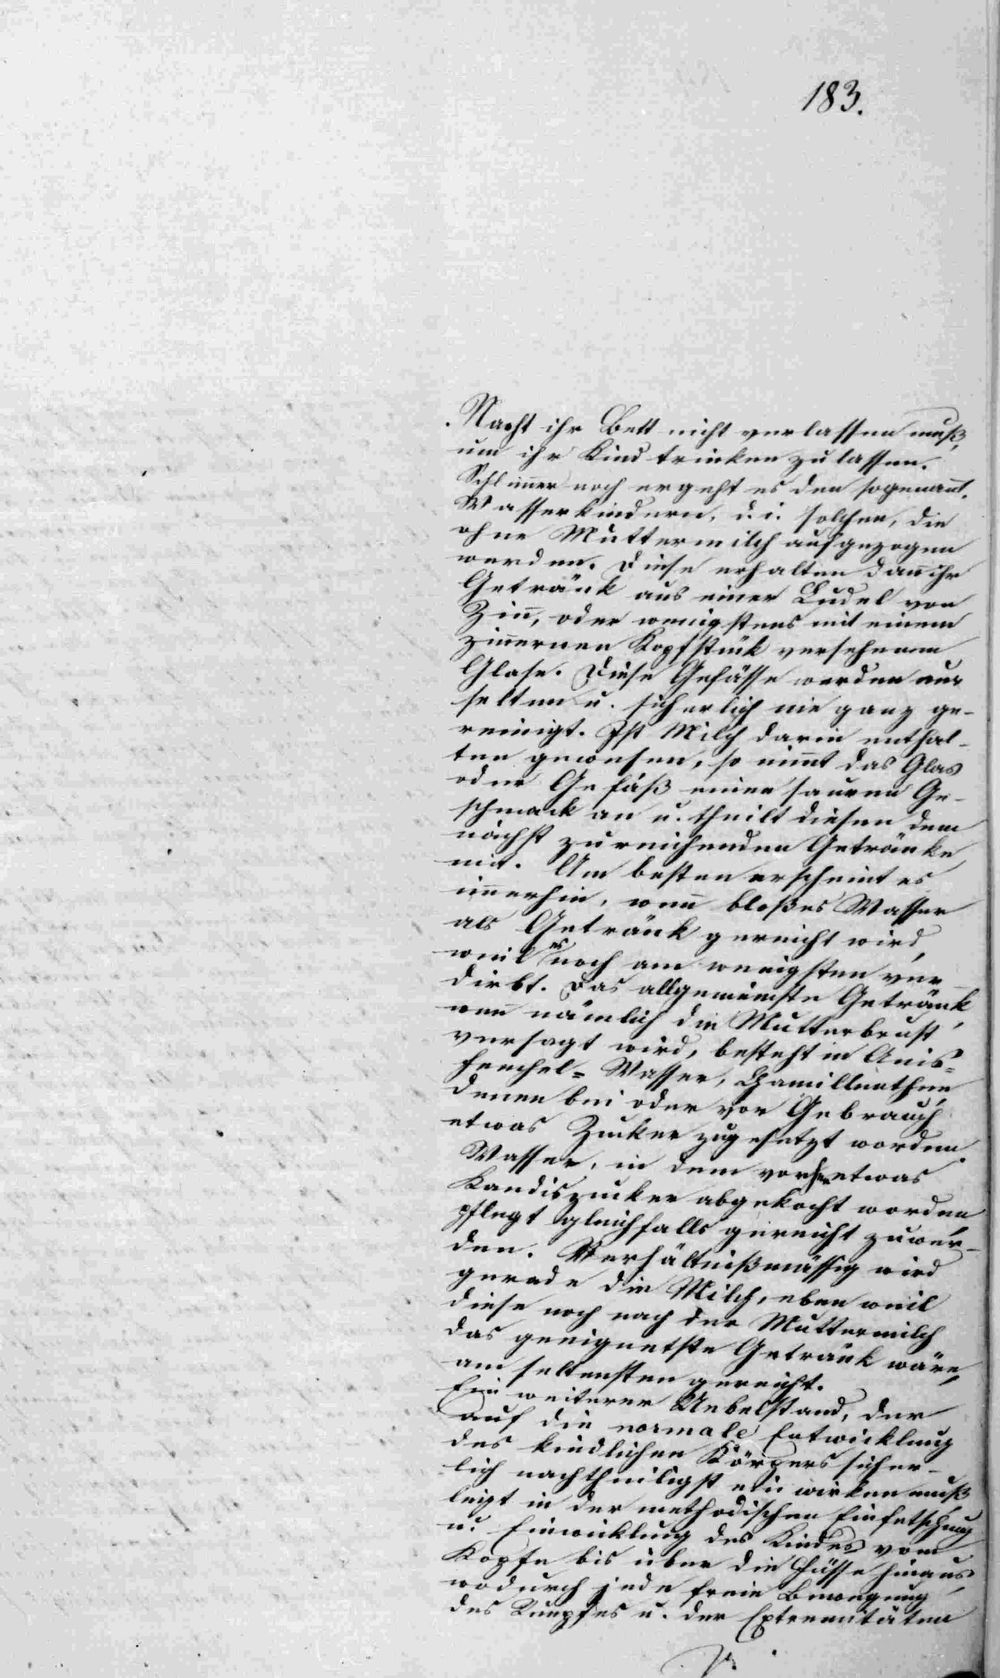 183.
Nacht ihr Bett nicht verlassen muß,
um ihr Kind trinken zu lassen.
Schlim̅er noch ergeht es den sogenan̅t.
Wasserkindern, d. i. solchen, die
ohne Muttermilch aufgezogen
werden. Diese erhalten dan̅ ihr
Getränk aus einer Ludel von
Zin̅, oder wenigstens mit einem
zin̅ernen Kopfstük versehenem
Glase. Diese Gefässe werden nur
selten u. sicherlich nie ganz ge-
reinigt. Ist Milch darin enthal-
ten gewesen, so nim̅t das Glas
oder Gefäß einen sauren Ge-
schmack an u. theilt diesen dem
nächst zu reichenden Getränke
mit. Am besten erscheint es
im̅erhin, wen̅ bloßes Wasser
als Getränk gereicht wird,
weil es noch am wenigsten ver-
dirbt. Das allgemeinste Getränk,
wen̅ nämlich die Mutterbrust
versagt wird, besteht in Anis-
Fenchel-Wasser, Kamillenthee,
denen bei oder vor Gebrauch
etwas Zucker zugesetzt worden.
Wasser, in dem vorher etwas
Kandiszucker abgekocht worden,
pflegt gleichfalls gereicht zu wer-
den. Verhältnißmässig wird
gerade die Milch, eben weil
diese noch nach der Muttermilch
das geeignetste Getränk wäre,
am seltensten gereicht.
Ein weiterer Uebelstand, der
auf die normale Entwicklung
des kindlichen Körpers sicher-
lich nachtheiligst einwirken muß,
liegt in der methodischen Einfetschung
u. Einwicklung des Kindes vom
Kopfe bis über die Füsse hinaus,
wodurch jede freie Bewegung
des Rumpfes u. der Extremitäten